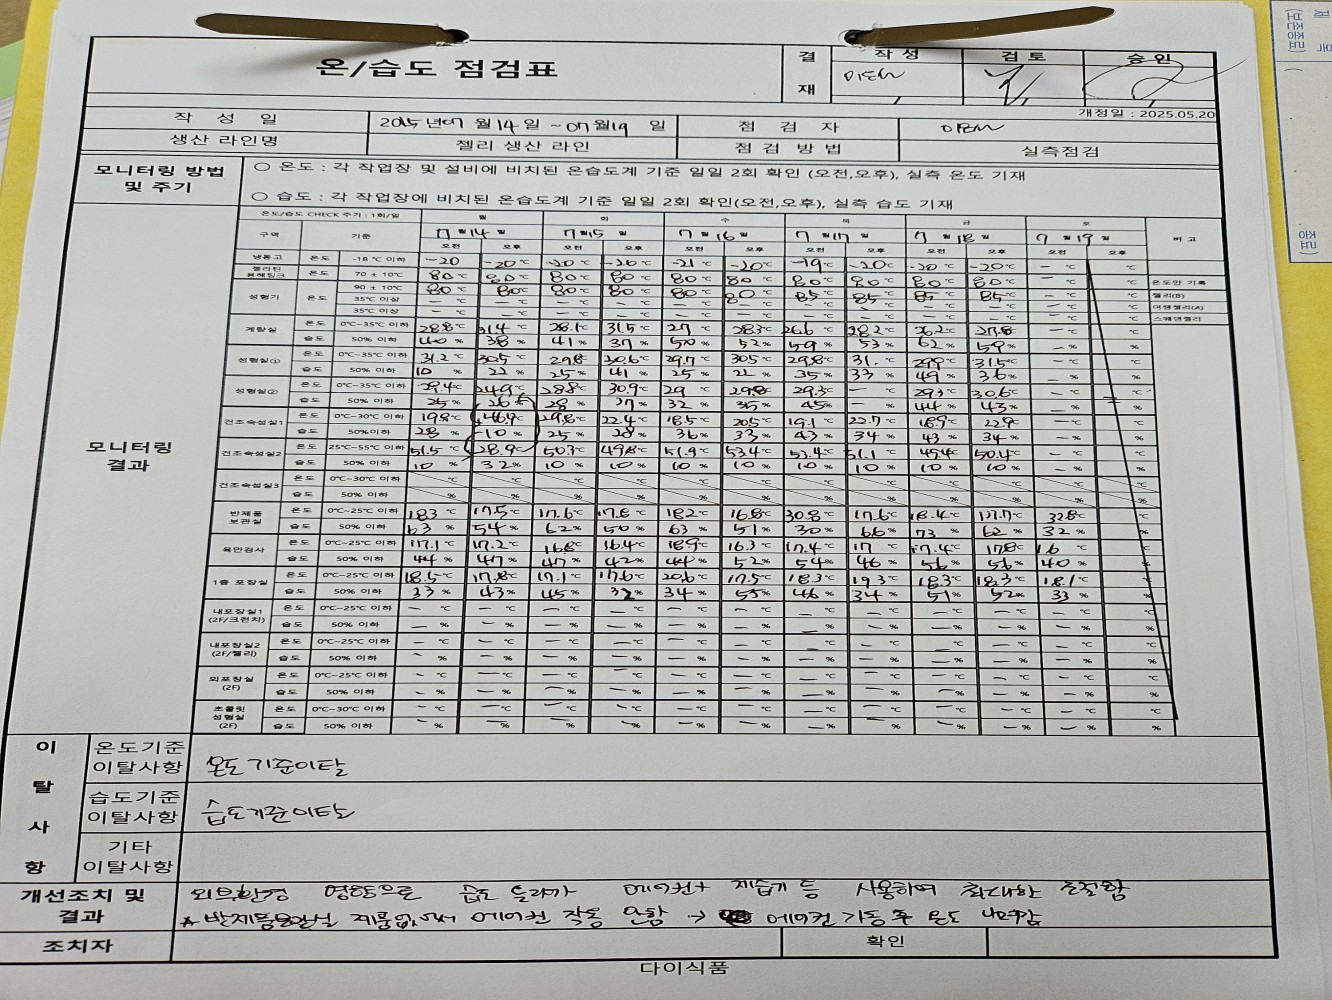 온/습도 점검표
결재 작성 검토 승인
개정일 : 2025.05.20
작 성 일 2025년 07월 14일 ~ 07월 19일 점 검 자
생산 라인명 젤리 생산 라인 점검 방법 실측점검
모니터링 방법 및 주기
○ 온도 : 각 작업장 및 설비에 비치된 온습도계 기준 일일 2회 확인 (오전,오후), 실측 온도 기재
○ 습도 : 각 작업장에 비치된 온습도계 기준 일일 2회 확인(오전,오후), 실측 습도 기재
모니터링 결과
온도/습도 CHECK 주기 : 1회/일 월 화 수 목 금 토
구역 기준 7월 14일 7월 15일 7월 16일 7월 17일 7월 18일 7월 19일 비 고
오전 오후 오전 오후 오전 오후 오전 오후 오전 오후 오전 오후
냉동고 온도 -18 ℃ 이하 -20 -20℃ -20℃ -20℃ -21℃ -20℃ -19℃ -20℃ -20℃ -20℃ - ℃ ℃
젤라틴 용해탱크 온도 70 ± 10℃ 80℃ 80℃ 80℃ 80℃ 80℃ 80℃ 80℃ 80℃ 80℃ 80℃ - ℃ ℃ 온도만 기록
성형기 온도 90 ± 10℃ 80℃ 80℃ 80℃ 80℃ 80℃ 80℃ 85℃ 85℃ 85℃ 85℃ - ℃ ℃ 젤리(B)
35℃ 이상 - ℃ - ℃ - ℃ - ℃ - ℃ - ℃ - ℃ - ℃ - ℃ - ℃ - ℃ ℃
35℃ 이상 - ℃ - ℃ - ℃ - ℃ - ℃ - ℃ - ℃ - ℃ - ℃ - ℃ - ℃ ℃ 스웨덴젤리
계량실 온도 0℃~35℃ 이하 28.8℃ 31.4℃ 28.1℃ 31.5℃ 27℃ 28.3℃ 26.6℃ 28.2℃ 26.2℃ 27.8℃ - ℃ ℃
습도 50% 이하 40% 38% 41% 37% 50% 52% 59% 53% 62% 59% - % %
성형실① 온도 0℃~35℃ 이하 31.2℃ 30.5℃ 29.8℃ 30.6℃ 29.7℃ 30.5℃ 29.8℃ 31.℃ 29.9℃ 31.5℃ - ℃ ℃
습도 50% 이하 10% 22% 25% 41% 25% 22% 35% 33% 49% 36% - % %
성형실② 온도 0℃~35℃ 이하 29.4℃ 24.9℃ 28.8℃ 30.9℃ 29℃ 29.8℃ 29.3℃ - ℃ 29.3℃ 30.6℃ - ℃ ℃
습도 50% 이하 25% 26% 28% 27% 32% 35% 45% - % 44% 43% - % %
건조숙성실1 온도 0℃~30℃ 이하 19.8℃ 46.9℃ 29.8℃ 22.4℃ 18.5℃ 20.5℃ 19.1℃ 22.7℃ 18.9℃ 22.9℃ - ℃ ℃
습도 50% 이하 28% 10% 25% 28% 36% 33% 43% 34% 43% 34% - % %
건조숙성실2 온도 25℃~55℃ 이하 51.5℃ 28.9℃ 50.3℃ 49.8℃ 51.9℃ 53.4℃ 53.4℃ 51.1℃ 49.4℃ 50.4℃ - ℃ ℃
습도 50% 이하 10% 32% 10% 10% 10% 10% 10% 10% 10% 10% - % %
건조숙성실3 온도 0℃~30℃ 이하 ℃ ℃ ℃ ℃ ℃ ℃ ℃ ℃ ℃ ℃ ℃ ℃
습도 50% 이하 % % % % % % % % % % % %
반제품 보관실 온도 0℃~25℃ 이하 18.3℃ 17.5℃ 17.6℃ 17.8℃ 18.2℃ 16.8℃ 30.8℃ 17.6℃ 18.4℃ 17.7℃ 32.8℃ ℃
습도 50% 이하 63% 54% 62% 50% 63% 51% 30% 66% 73% 62% 32% %
육안검사 온도 0℃~25℃ 이하 17.1℃ 17.2℃ 16.8℃ 16.4℃ 18.9℃ 16.3℃ 17.4℃ 17℃ 17.4℃ 17.8℃ 16℃ ℃
습도 50% 이하 44% 47% 47% 42% 44% 52% 54% 46% 56% 56% 40% %
1층 포장실 온도 0℃~25℃ 이하 18.5℃ 17.8℃ 17.1℃ 17.6℃ 20.6℃ 17.5℃ 18.3℃ 19.3℃ 18.3℃ 18.3℃ 18.1℃ ℃
습도 50% 이하 33% 43% 45% 32% 34% 55% 46% 34% 51% 52% 33% %
내포장실1 (2F/크런치) 온도 0℃~25℃ 이하 - ℃ - ℃ - ℃ - ℃ - ℃ - ℃ - ℃ - ℃ - ℃ - ℃ - ℃ ℃
습도 50% 이하 - % - % - % - % - % - % - % - % - % - % - % %
내포장실2 (2F/젤리) 온도 0℃~25℃ 이하 - ℃ - ℃ - ℃ - ℃ - ℃ - ℃ - ℃ - ℃ - ℃ - ℃ - ℃ ℃
습도 50% 이하 - % - % - % - % - % - % - % - % - % - % - % %
외포장실 (2F) 온도 0℃~25℃ 이하 - ℃ - ℃ - ℃ - ℃ - ℃ - ℃ - ℃ - ℃ - ℃ - ℃ - ℃ ℃
습도 50% 이하 - % - % - % - % - % - % - % - % - % - % - % %
초콜릿 성형실 (2F) 온도 0℃~30℃ 이하 - ℃ - ℃ - ℃ - ℃ - ℃ - ℃ - ℃ - ℃ - ℃ - ℃ - ℃ ℃
습도 50% 이하 - % - % - % - % - % - % - % - % - % - % - % %
이탈사항
온도기준 이탈사항 온도기준이탈
습도기준 이탈사항 습도기준이탈
기타 이탈사항
개선조치 및 결과
외부환경 영향으로 습도 올라가 에어컨+ 제습기 등 사용하여 최대한 조절함
* 반제품보관실 제품없어서 에어컨 작동 안함 → 에어컨 가동 후 온도 낮춤
조치자 확인
다이식품